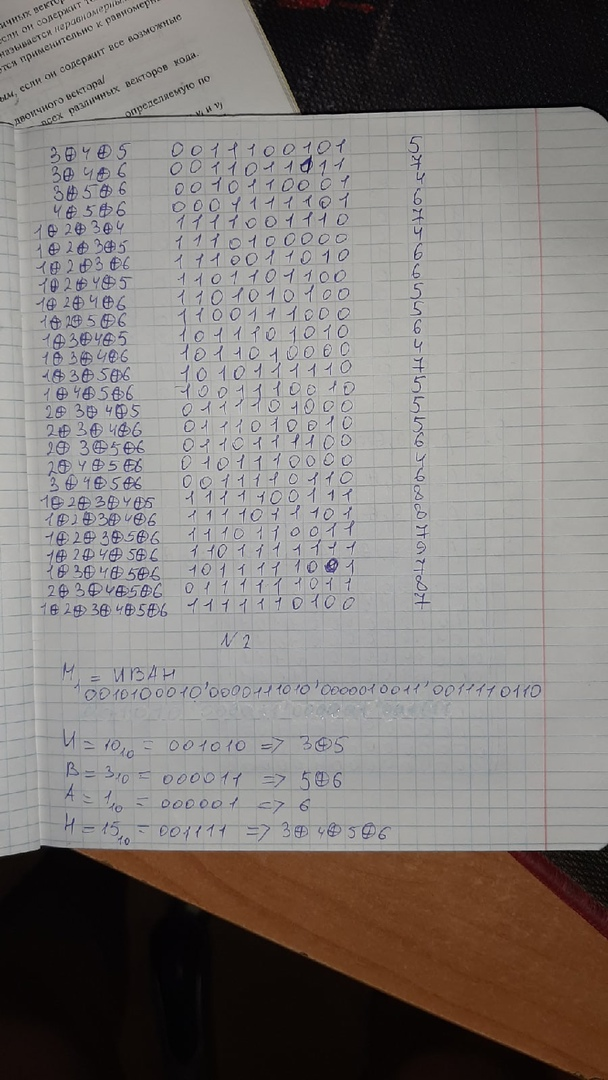 ичных вектор
если он содержит
называется неравномерны
ются применительно к равномерн
ым, если он содержит все возможные
двоичного вектора/
всех различных векторов кода.
определяемую по
3⊕4⊕5 0011100101 5
3⊕4⊕6 00110110111 7
3⊕5⊕6 0010110001 4
4⊕5⊕6 0001111101 6
1⊕2⊕3⊕4 1111001110 7
1⊕2⊕3⊕5 1110100000 4
1⊕2⊕3⊕6 1110011010 6
1⊕2⊕4⊕5 1101101100 6
1⊕2⊕4⊕6 1101010100 5
1⊕2⊕5⊕6 1100111000 5
1⊕3⊕4⊕5 1011101010 6
1⊕3⊕4⊕6 1011010000 4
1⊕3⊕5⊕6 1010111110 7
1⊕4⊕5⊕6 1001110010 5
2⊕3⊕4⊕5 0111101000 5
2⊕3⊕4⊕6 0111010010 5
2⊕3⊕5⊕6 0110111100 6
2⊕4⊕5⊕6 0101110000 4
3⊕4⊕5⊕6 0011110110 6
1⊕2⊕3⊕4⊕5 1111100111 8
1⊕2⊕3⊕4⊕6 1111011101 8
1⊕2⊕3⊕5⊕6 1110110011 7
1⊕2⊕4⊕5⊕6 1101111111 9
1⊕3⊕4⊕5⊕6 1011111001 7
2⊕3⊕4⊕5⊕6 0111111011 8
1⊕2⊕3⊕4⊕5⊕6 1111110100 7
N2
M₁ = ИВАН
0010100010'0000111010'0000010011'0011110110
И = 10₁₀ = 001010 => 3⊕5
В = 3₁₀ = 000011 => 5⊕6
А = 1₁₀ = 000001 => 6
Н = 15₁₀ = 001111 => 3⊕4⊕5⊕6